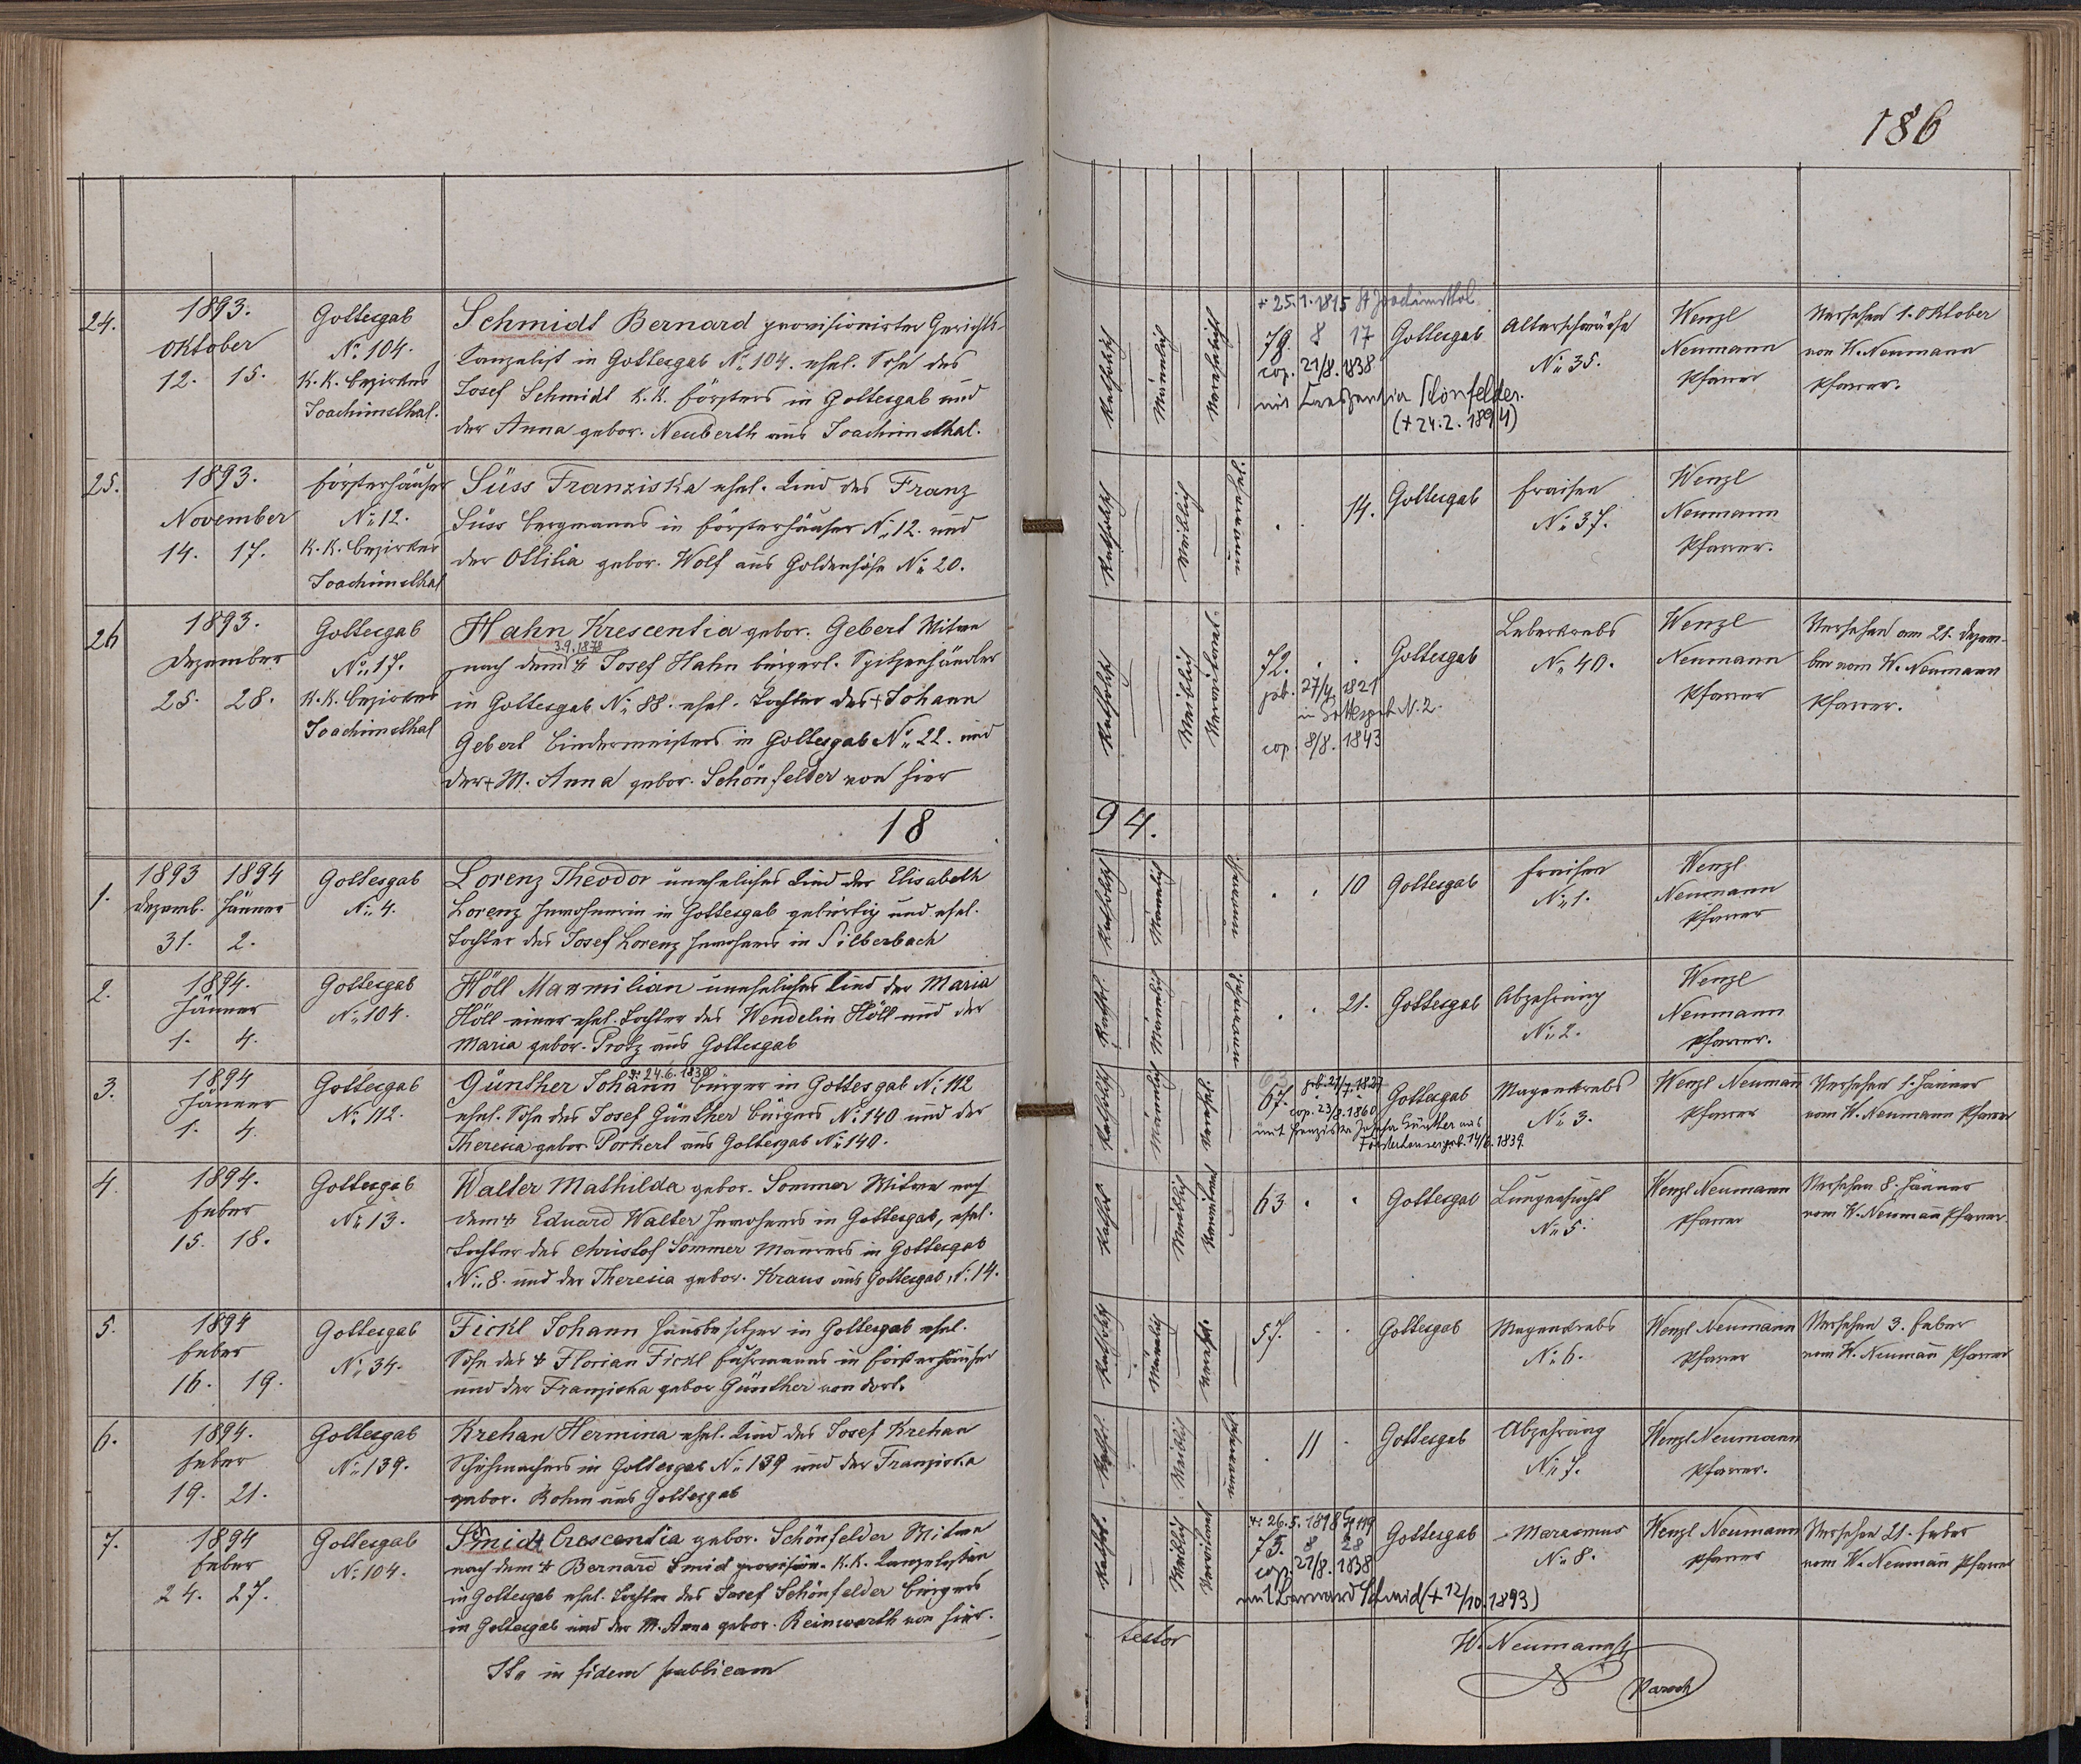 186
24.
1893.
Oktober
12. 15.
Gottesgab
No 104.
K.K. Bezirkes
Joachimsthal.
Schmidt Bernard provisionirter Gerichts-
kanzelist in Gottesgab No 104. ehel. Sohn des
Josef Schmidt K.K. Försters in Gottesgab und
der Anna gebor. Neuberth aus Joachimsthal.
Katholisch
Männlich
Verehelicht
* 25.1.1815 St Joachimsthal
79. 8 17
cop. 21/8. 1838
mit Kreszentia Schönfelder.
(+ 24.2.1894)
Gottesgab
Altersschwäche
No 35.
Wenzl
Neumann
Pfarrer
Versehen 1. Oktober
von W. Neumann
Pfarrer.
25.
1893.
November
14. 17.
Försterhäuser
No 12.
K.K. Bezirkes
Joachimsthal
Süss Franziska ehel. Kind des Franz
Süss Bergmanns in Försterhäuser No 12. und
der Ottilia gebor. Wolf aus Goldenhöhe No 20.
Katholisch
Weiblich
. . 14.
Gottesgab
Fraisen
No 37.
Wenzl
Neumann
Pfarrer.
26
1893.
Dezember
25. 28.
Gottesgab
No 17.
K.K. Bezirkes
Joachimsthal
Hahn Krescentia gebor. Gebert Witwe
3.9.1878
nach dem + Josef Hahn bürgerl. Spitzenhändler
in Gottesgab No 88. ehel. Tochter des + Johann
Gebert Bindermeisters in Gottesgab No 22. und
der + M. Anna gebor. Schönfelder von hier
Katholisch
Weiblich
Verwitwet.
72. . .
geb. 27/4. 1821
in Gottesgab N. 2.
cop. 8/8. 1843
Gottesgab
Leberkrebs
No 40.
Wenzl
Neumann
Pfarrer
Versehen am 21. Dezem-
ber vom W. Neumann
Pfarrer.
18 94.
1.
1893 1894
Dezemb. Jänner
31. 2.
Gottesgab
No 4.
Lorenz Theodor uneheliches Kind der Elisabeth
Lorenz Inwohnerin in Gottesgab gebürtig und ehel.
Tochter des Josef Lorenz Inwohners in Silberbach
Katholisch
Männlich
. . 10
Gottesgab
Fraisen
No 1.
Wenzl
Neumann
Pfarrer
2.
1894.
Jänner
1. 4.
Gottesgab
No 104.
Höll Maxmilian uneheliches Kind der Maria
Höll einer ehel. Tochter des Wendelin Höll und der
Maria gebor. Protz aus Gottesgab
Kathol.
Männlich
. . 21.
Gottesgab
Abzehrung
No 2.
Wenzl
Neumann
Pfarrer.
3.
1894
Jänner
1. 4.
Gottesgab
No 112.
* 24.6.1830
Günther Johann Bürger in Gottesgab No 112
ehel. Sohn des Josef Günther Bürgers No 140 und der
Theresia gebor. Porkert aus Gottesgab No 140.
Katholisch
Männlich
Verehel.
67.
geb. 21/7. 1827
cop. 23/8. 1860
mit Franziska Josefa Günther aus
Försterhäuser geb. 14/6. 1839.
Gottesgab
Magenkrebs
No 3.
Wenzl Neumann
Pfarrer
Versehen 1. Jänner
vom W. Neumann Pfarrer
4.
1894.
Feber
15. 18.
Gottesgab
No 13.
Walter Mathilda gebor. Sommer Witwe nach
dem + Eduard Walter Inwohners in Gottesgab, ehel.
Tochter des Christof Sommer Maurers in Gottesgab
No 8. und der Theresia gebor. Kraus aus Gottesgab, No 14.
Kathol.
Weiblich
Verwitwet
63 . .
Gottesgab
Lungensucht
No 5.
Wenzl Neumann
Pfarrer
Versehen 8. Jänner
vom W. Neumann Pfarrer.
5.
1894
Feber
16. 19.
Gottesgab
No 34.
Fickl Johann Hausbesitzer in Gottesgab ehel.
Sohn des + Florian Fickl Fuhrmanns in Försterhäuser
und der Franziska gebor Günther von dort.
Katholisch
Männlich
Verehl.
57. . .
Gottesgab
Magenkrebs
No 6.
Wenzl Neumann
Pfarrer
Versehen 3. Feber
vom W. Neumann Pfarrer
6.
1894.
Feber
19. 21.
Gottesgab
No 139.
Krehan Hermina ehel. Kind des Josef Krehan
Schuhmachers in Gottesgab No 139 und der Franziska
gebor. Böhm aus Gottesgab
Kathl.
Weiblich
. 11 .
Gottesgab
Abzehrung
No 7.
Wenzl Neumann
Pfarrer.
7.
1894
Feber
24. 27.
Gottesgab
No 104.
Smidt Crescentia gebor. Schönfelder Witwe
nach dem + Bernard Smid provision. K.K. Kanzelisten
in Gottesgab ehel. Tochter des Josef Schönfelder Bürgers
in Gottesgab und der M. Anna gebor. Reinwarth von hier.
Kathol.
Weiblich
Verwitwet
* 26.5.1818
75. 8 28
cop. 21/8. 1838
mit Bernard Schmid (+ 12/10. 1893)
Gottesgab
Marasmus
No 8.
Wenzl Neumann
Pfarrer
Versehen 21. Feber
vom W. Neumann Pfarrer
Ita in fidem publicam
testor
W. Neumann
Paroch